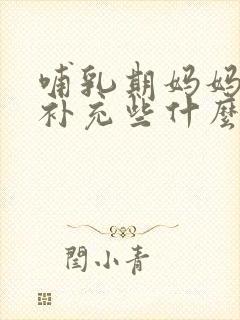 哺乳期妈妈
补充些什麽
闫小青